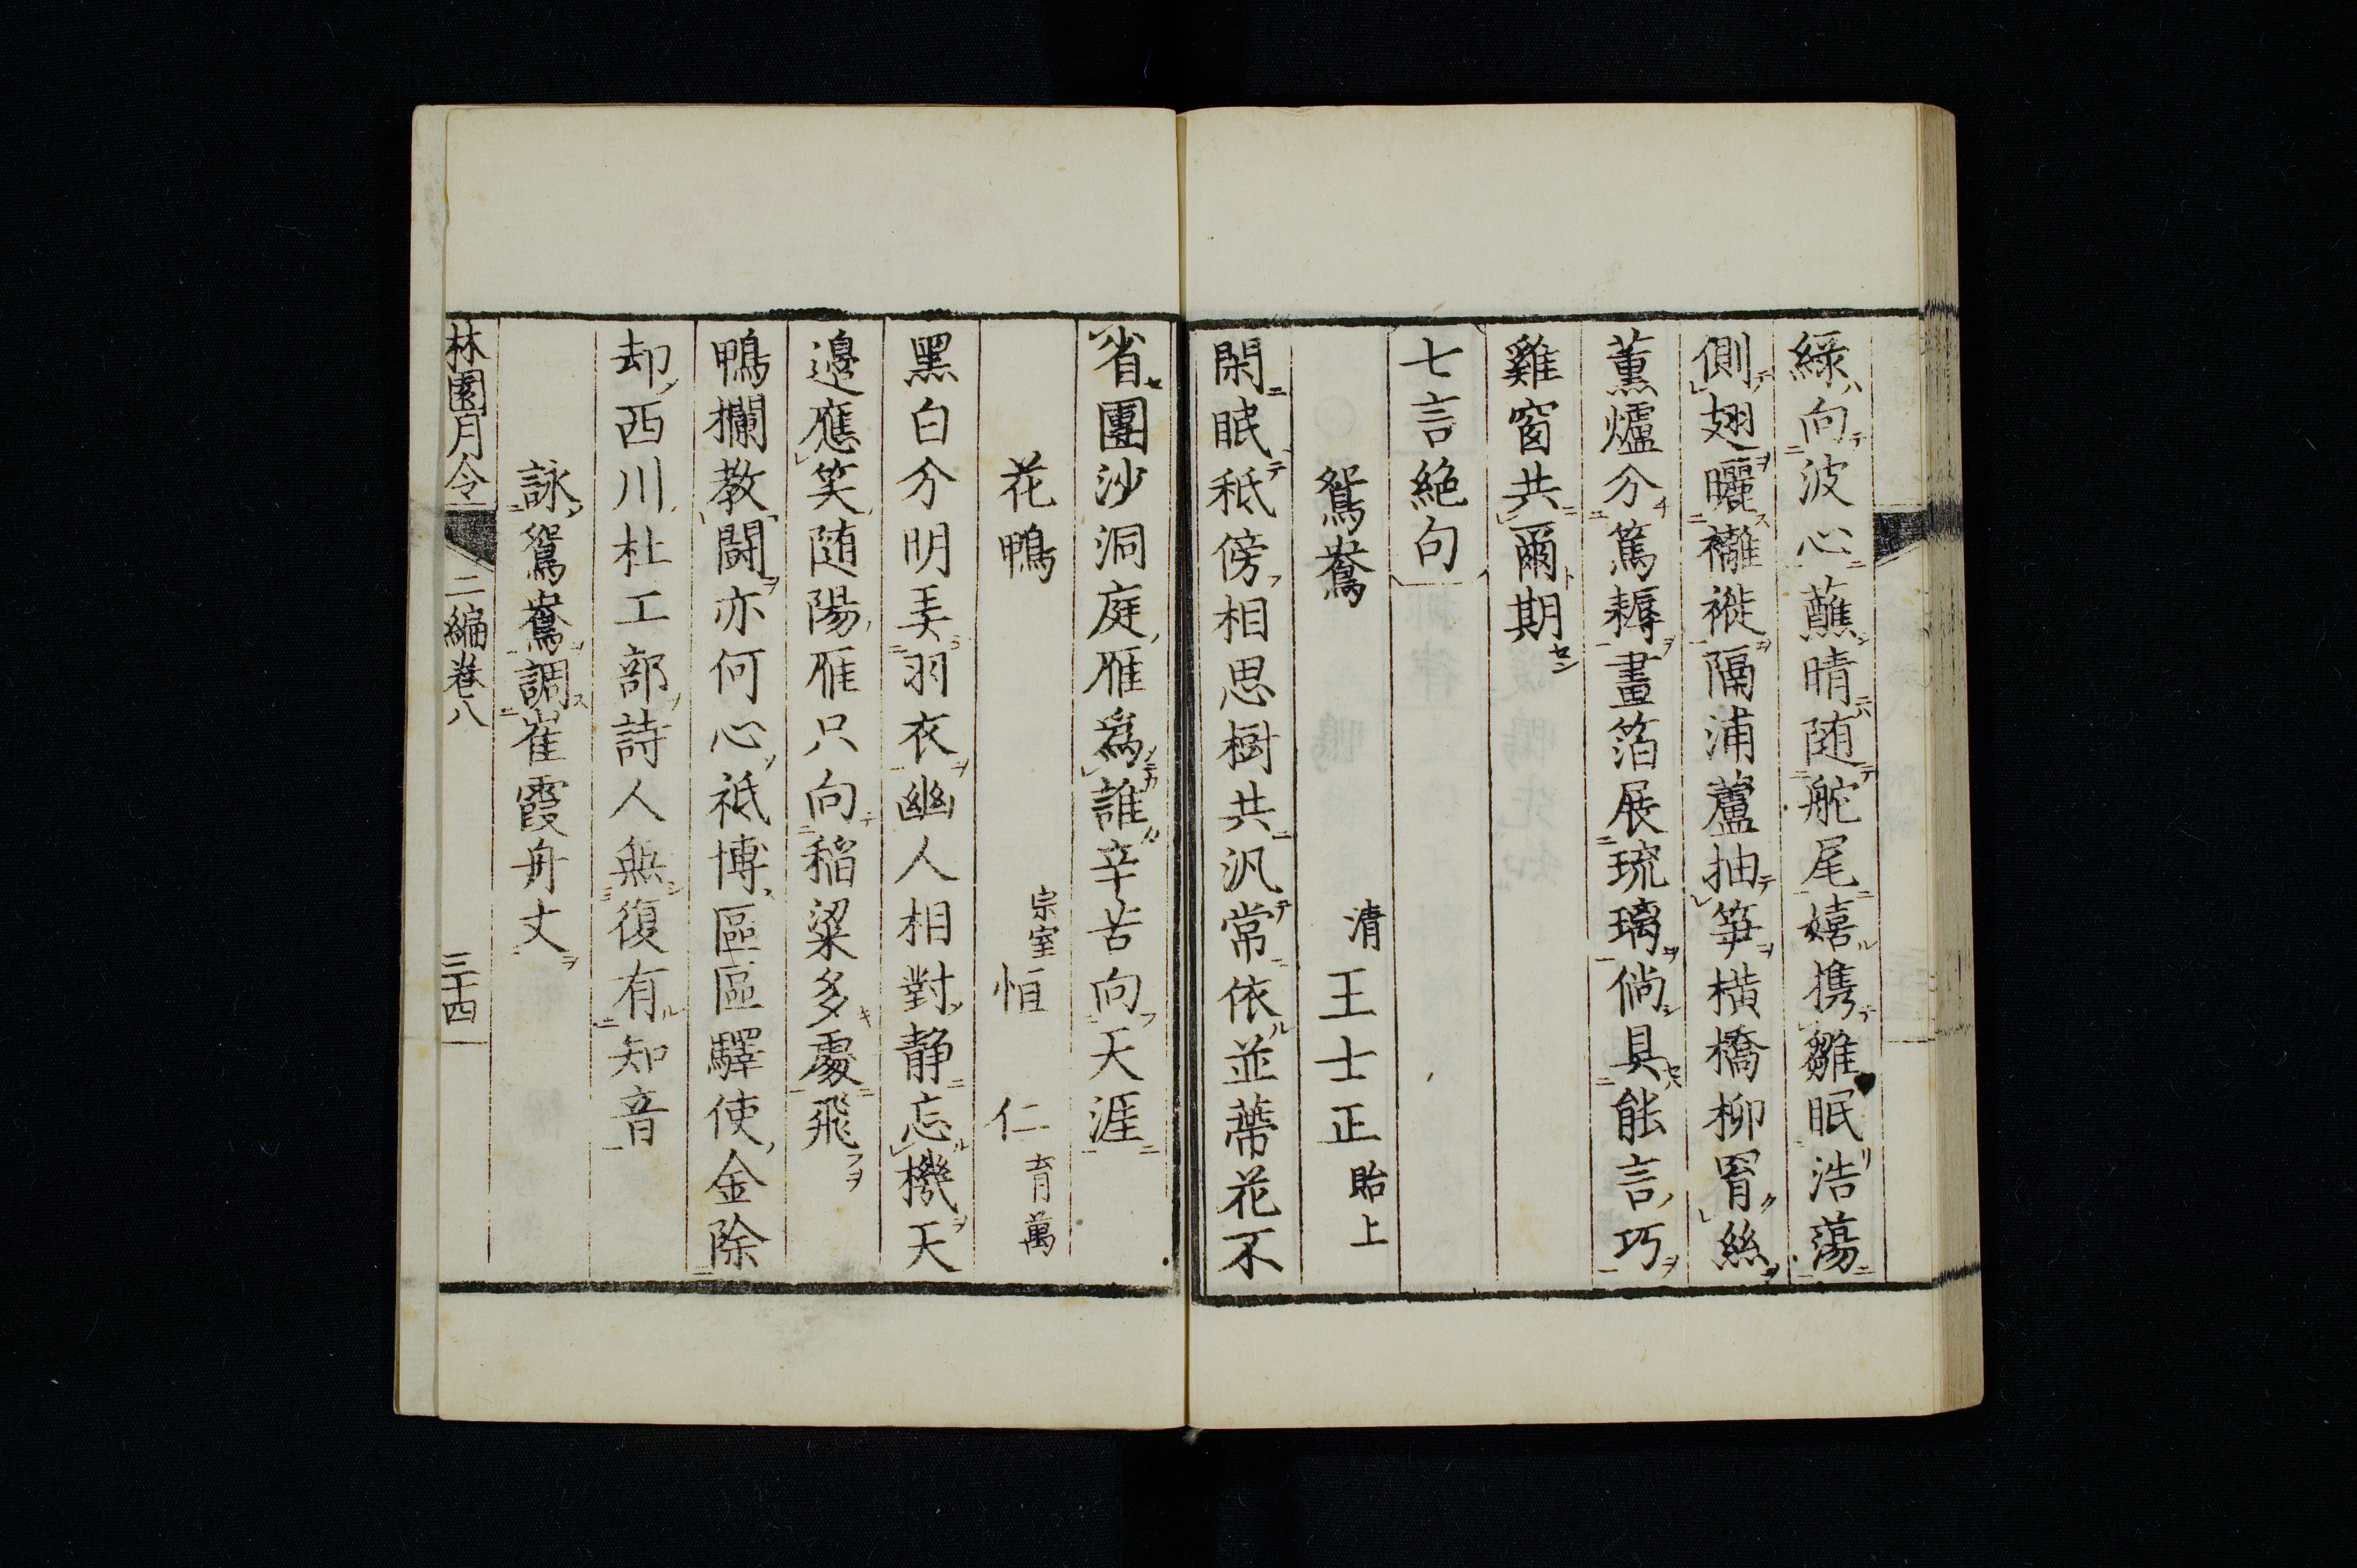 綠向波心蘸晴随舵尾嬉携雛眠浩蕩
側翅曬襳褷隔浦蘆抽笋横橋柳罥絲
薫爐分篤耨畫箔展琉璃倘具能言巧
雞窗共爾期
七言絶句
鴛鴦 清 王士正 貽上
閑眠秪傍相思樹共汎常依並蔕花不
省團沙洞庭雁為誰辛苦向天涯
花鴨 宗室 恒仁 育萬
黑白分明美羽衣幽人相對静忘機天
邉應笑随陽雁只向稲粱多處飛
鴨欄教闘亦何心祗博區區驛使金除
却西川杜工部詩人無復有知音
詠鴛鴦調崔霞舟丈
林園月令 二編巻八 三十四